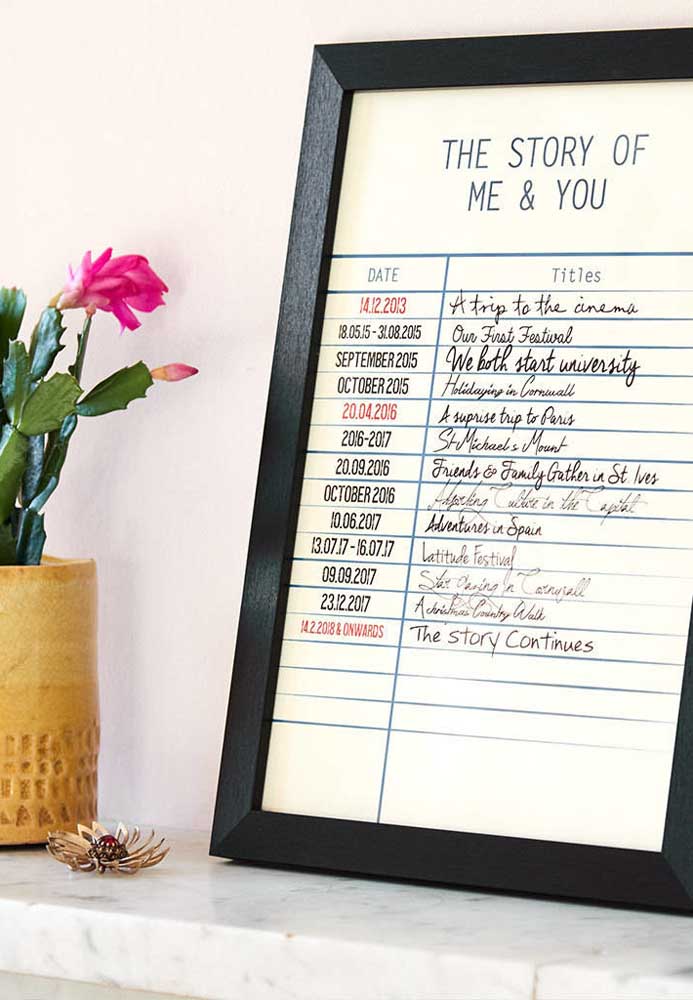 THE STORY OF
ME & YOU
DATE Titles
14.12.2013 A trip to the cinema
18.05.15 - 31.08.2015 Our First Festival
SEPTEMBER 2015 We both start university
OCTOBER 2015 Holidaying in Cornwall
20.04.2016 A suprise trip to Paris
2016-2017 St Michael's Mount
20.09.2016 Friends & Family Gather in St Ives
OCTOBER 2016 Absorbing Culture in the Capital
10.06.2017 Adventures in Spain
13.07.17 - 16.07.17 Latitude Festival
09.09.2017 Star Gazing In Cornwall
23.12.2017 A christmas Country Walk
14.2.2018 & ONWARDS The story Continues